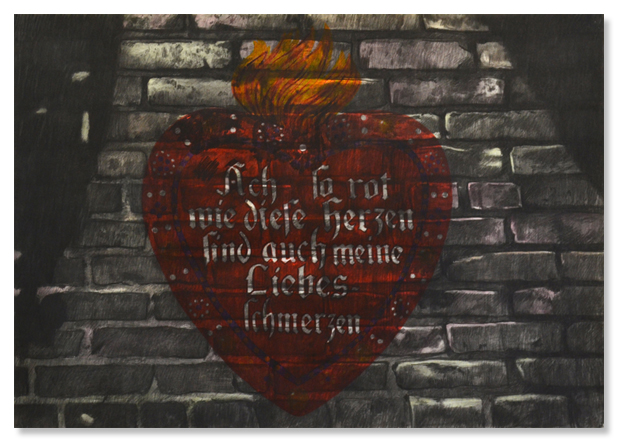 Ach so rot
wie diese Herzen
sind auch meine
Liebes-
schmerzen